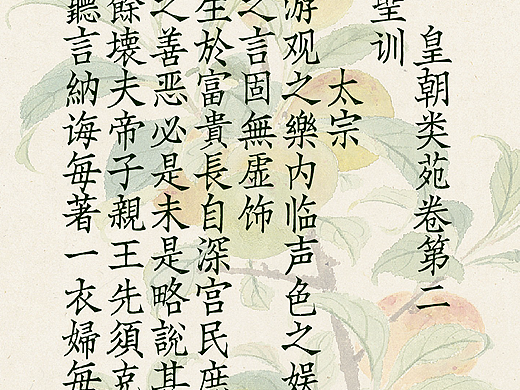 皇朝类苑卷第二
聖训
太宗
游观之樂内临声色之娱
之言固無虛饰
生於富貴長自深宫民庶
之善恶必是未是略說其
餘壊夫帝子親王先須克
聽言納诲每著一衣婦每